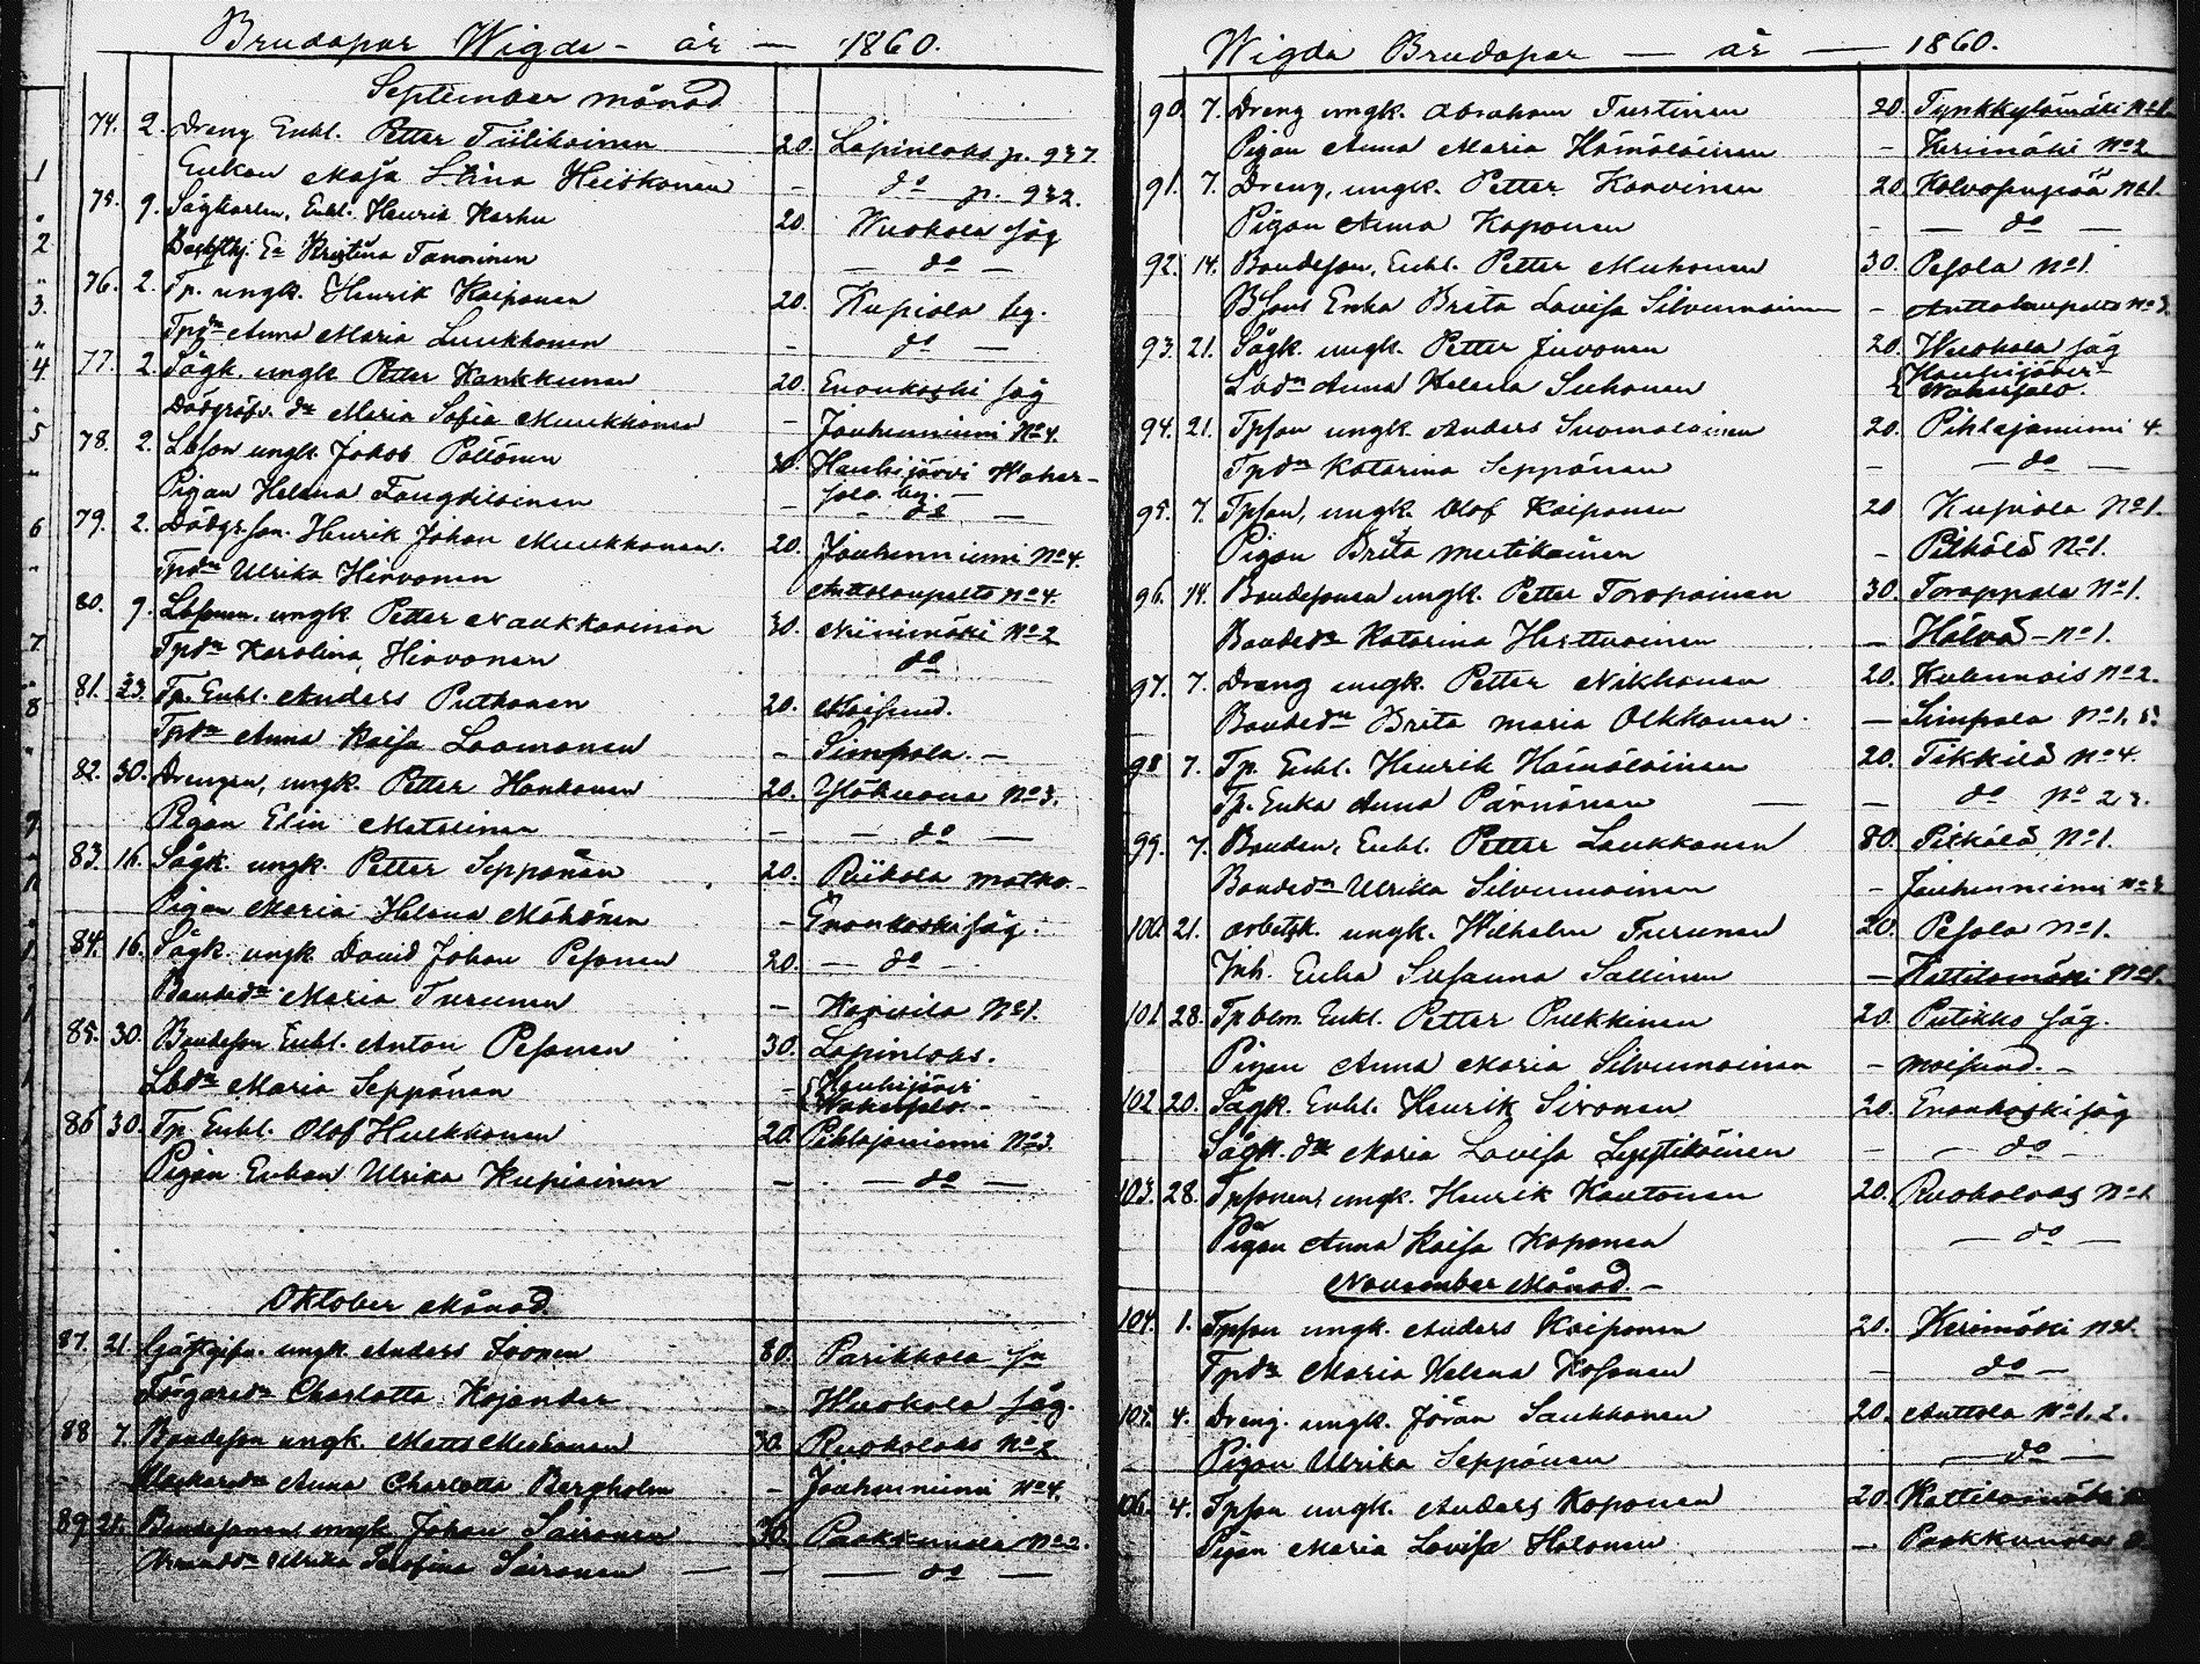 Brudapar Wigde - år - 1860.
September månad
74. 2. Dreng Enkl. Petter Tiilikainen 20. Lapinlaks p. 937
Enkan Maja Stina Heiskonen - do p. 932.
75. 9. Sågkarlen, Enkl. Henrik Karhu 20. Wuokala såg
Ea Kristina Tanninen - do -
76. 2. Tp. ungk. Henrik Kaiponen 20. Kupiala by.
Tpdn Anna Maria Luukkonen - do -
77. 2. Sågk. ungk. Petter Kankkunen 20. Enonkoski såg
dr Maria Sofia Muukkonen - Jouhenniemi No 4.
78. 2. Lbson ungk. Jakob Pöllönen 30. Hauhijärvi Waher-
Pigan Helena - salo by. - do -
79. 2. Henrik Johan Muukkonen. 20. Jouhenniemi No 4.
Tpdn Ulrika Hirvonen Anttolanpelto No 4.
80. 9. Lbsonen. ungk. Petter Naukkarinen 30. Niinimäki No 2
Tpdn Karolina Hirvonen do
81. 23. Tp. Enkl. Anders Putkonen 20. Moisund.
Tpdn Anna Kaisa Laamanen - Simpala. -
82. 30. Drengen, ungk. Petter Honkonen 20. Ylökuona No 3.
Pigan Elin Matelinen - - do -
83. 16. Sågk. ungk. Petter Sepponen 20. Riikola
Pigan Maria Helena Mähönen - Enonkoski såg.
84. 16. Sågk. ungk. David Johan Pesonen 20. - do -
Bondedn Maria Turunen - No 1.
85. 30. Bondeson Enkl. Anton Pesonen 30. Lapinlaks.
Lbdn Maria Seppänen - Hauhijärvi Wahersalo. -
86 30. Tp. Enkl. Olof Hulkkonen 20. Pihlajaniemi No 3.
Pigan Enkan Ulrika Kupiainen - - do -
Oktober Månad.
87. 21. ungk. Anders Ivonen 80. Parikkala sn
Charlotta Kojander - Wuokala såg.
88 7. Bondeson ungk. Matts Muhonen 30. Ruokolaks No 2
Anna Charlotta Bergholm - Jouhenniemi No 4.
89. 21. Bondesonen ungk. Johan Sairanen 30. Paakkunala No 2.
Ulrika Serafina Sairanen - - do -
Wigda Brudapar - år - 1860.
90. 7. Dreng ungk. Abraham Turtinen 20. Tynkkylämäki No 1.
Pigan Anna Maria Hämäläinen - Kerimäki No 2
91. 7. Dreng, ungk. Petter Karvinen 20. Kolvonpää No 1.
Pigan Anna Koponen - - do -
92. 14. Bondeson, Enkl. Petter Muhonen 30. Pesola No 1.
Enka Brita Lovisa Silvennoinen - Anttolanpelto No 3.
93. 21. Sågk. ungk. Petter Juvonen 20. Wuokala såg
Lbdn Anna Helena Suhonen - Hauhijärvi Wahersalo.
94. 21. Tpson ungk. Anders Suomalainen 20. Pihlajaniemi 4.
Tpdn Katarina Seppänen - - do -
95. 7. Tpson, ungk. Olof Kaiponen 20 Kupiala No 1.
Pigan Brita Mustikainen - Pitkälä No 1.
96. 14. Bondesonen ungk. Petter Toropainen 30. Toroppala No 1.
Bondedn Katarina Herttuainen - Hälvä - No 1.
97. 7. Dreng ungk. Petter Nikkonen 20. Kulennois No 2.
Bondedn Brita Maria Olkkonen - Simpala No 1. 5.
98 7. Tp. Enkl. Henrik Hämäläinen 20. Tikkilä No 4.
Tp. Enka Anna Pärnänen - do No 23.
99. 7. Bonden, Enkl. Petter Laukkanen 80. Pitkälä No 1.
Bondedn Ulrika Silvennoinen - Jouhenniemi No 3.
100. 21. Arbetsk. ungk. Wilhelm Turunen 20. Pesola No 1.
Inh. Enka Susanna Sallinen - Kattilamäki No 1.
101 28. Enkl. Petter Pulkkinen 20. Putikko såg.
Pigan Anna Maria Silvennoinen - Moisund. -
102. 20. Sågk. Enkl. Henrik Sironen 20. Enonkoski såg
Sågk. dr Maria Lovisa - - do -
103. 28. Tpsonen, ungk. Henrik Kautonen 20. Ruokolaks No 1
Pigan Anna Kaisa Koponen - do -
November Månad. -
104. 1. Tpson ungk. Anders Kaiponen 20. Kerimäki
Tpdn Maria Helena Kosonen - do -
105. 4. Dreng. ungk. Jöran Saukkonen 20. Anttola No 1. 2.
Pigan Ulrika Seppänen - do -
106. 4. Tpson ungk. Anders Koponen 20. Kattilamäki
Pigan Maria Lovisa Holonen - Paakkunala